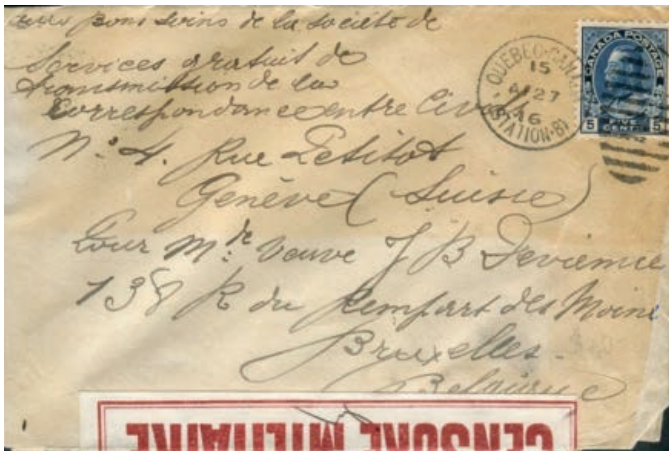 aux bons soins de la société de
Services gratuit de
transmission de la
Correspondance entre Civils
No 4. Rue Petitot
Genève (Suisse)
Pour Mde Veuve J B Devienne
138 R du Rempart des Moine
Bruxelles.
Belgique
QUEBEC·CANADA
15
AP 27
16
STATION·B
CANADA POSTAGE
5 FIVE 5
CENTS
CENSURE MILITAIRE